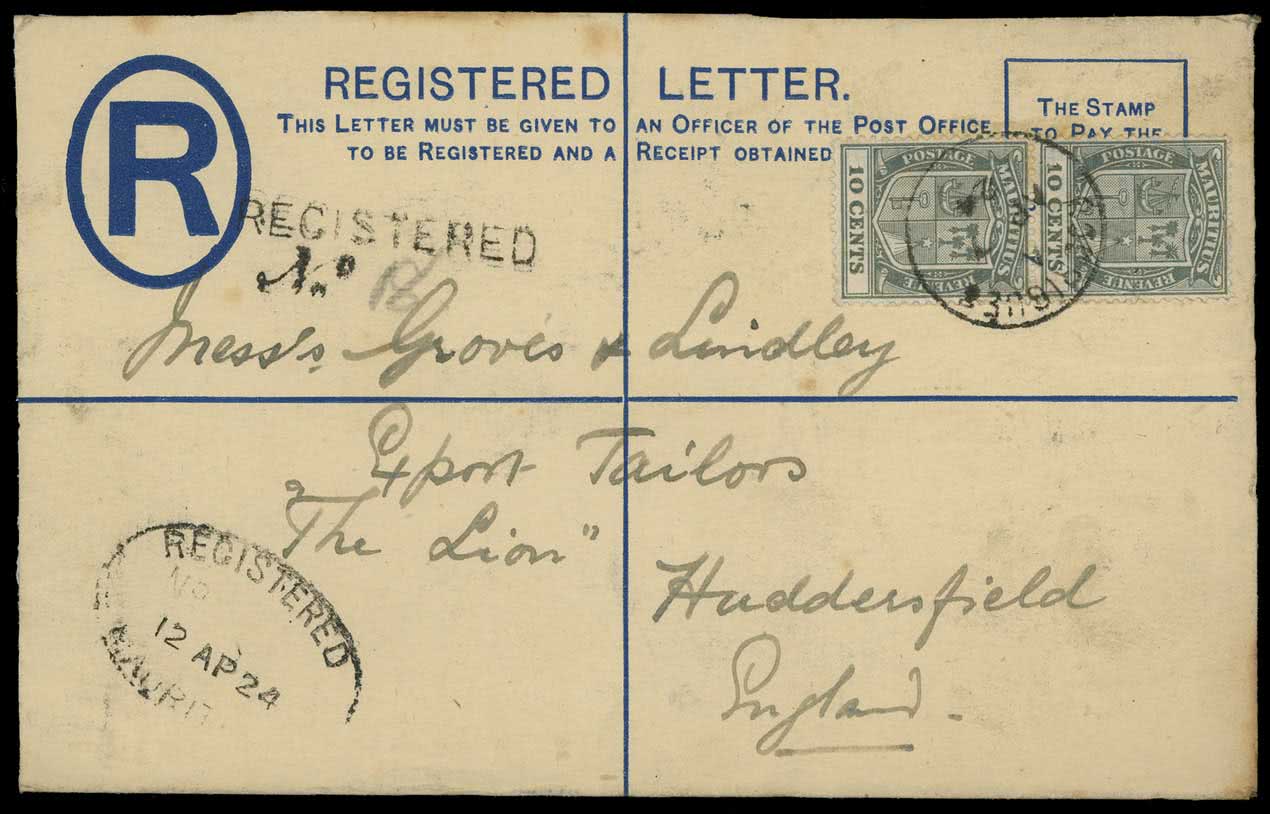 R
REGISTERED LETTER.
THIS LETTER MUST BE GIVEN TO AN OFFICER OF THE POST OFFICE
TO BE REGISTERED AND A RECEIPT OBTAINED
THE STAMP
TO PAY THE
POSTAGE
MAURITIUS
REVENUE
10 CENTS
POSTAGE
MAURITIUS
REVENUE
10 CENTS
REGISTERED
No
Mess's. Groves & Lindley
Export Tailors
"The Lion"
Huddersfield
England.
REGISTERED
12 AP 24